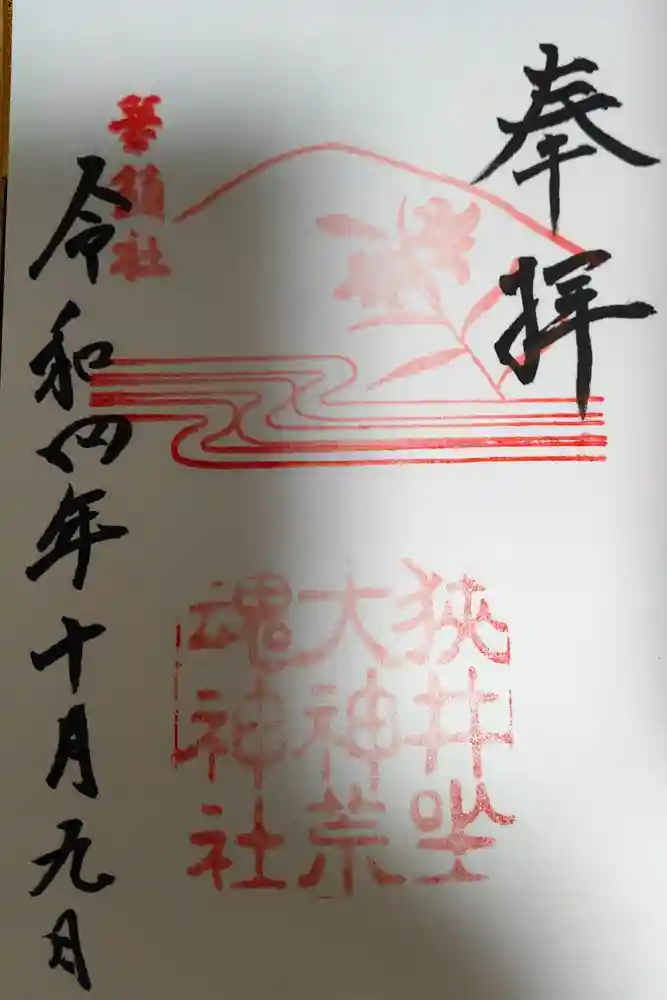 奉拝
狭井坐
大神荒
魂神社
華鎮社
令和四年十月九日